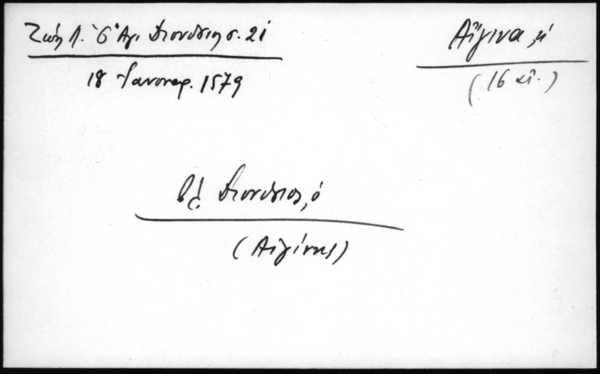 Ζώη Λ. Ὁ Ἅγ. Διονύσιος σ. 21
18 Ιανουαρ. 1579
Αἴγινα, ἡ
(16 αἰ.)
βλ. Διονύσιος, ὁ
(Αἰγίνης)